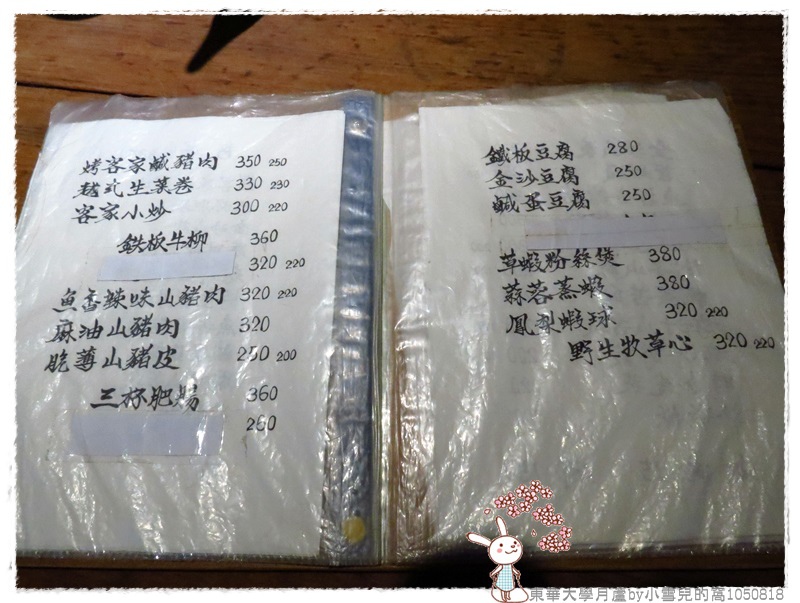 烤客家鹹豬肉 350 250
越式生菜卷 330 230
客家小炒 300 220
鉄板牛柳 360
320 220
魚香辣味山豬肉 320 220
麻油山豬肉 320
脆薄山豬皮 250 200
三杯肥腸 360
280
鐵板豆腐 280
金沙豆腐 250
鹹蛋豆腐 250
草蝦粉絲煲 380
蒜蓉蒸蝦 380
鳳梨蝦球 320 220
野生牧草心 320 220
東華大學月廬by小雪兒的窩1050818